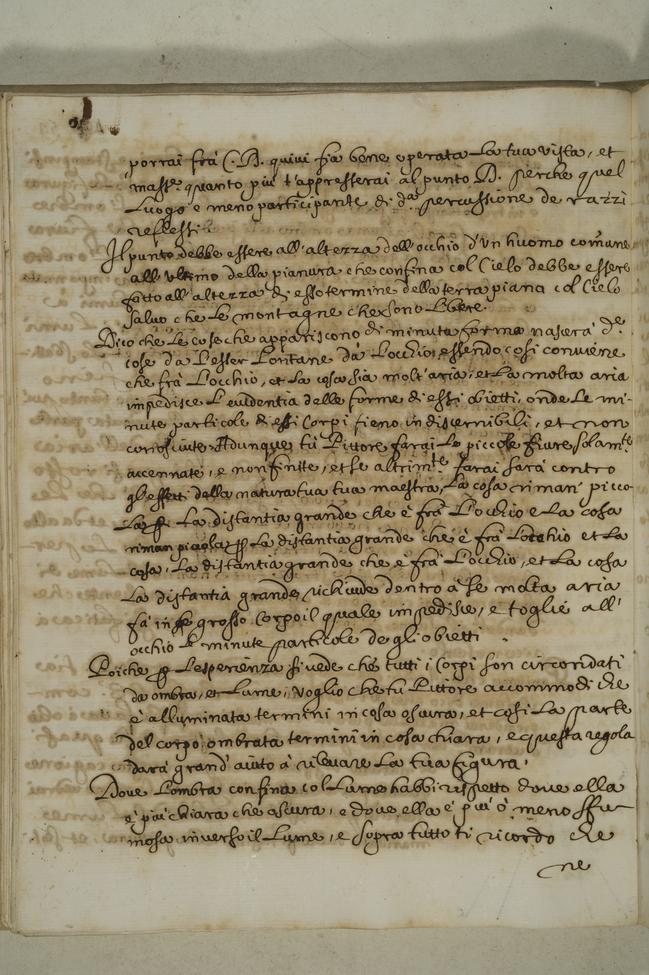 porrai frà C. B. quivi fia bene operata la tua vista, et
mass.e quanto più t'appresserai al punto B. perche quel
luogo è meno participante di d.a percussione de razzi
reflessi.
Il punto debbe essere all'altezza dell'occhio d'un huomo comune
all'ultimo della pianura che confina col Cielo debbe essere
fatto all'altezza di esso termine della terra piana col Cielo
salvo che le montagne che sono libere.
Dico che le cose che appariscono di minuta forma nascerà d.e
cose dà l'esser lontane dà l'occhio, essendo così conviene
che frà l'occhio, et la cosa sia molt'aria, et la molta aria
impedisce l'evidentia delle forme di essi obietti, onde le mi-
nute particole di essi Corpi fieno indiscernibili, et non
conosciute. Adunque tù Pittore farai le piccole fiure solam.te
accennate, e non finite, et se altrim.te farai sarà contro
gl'effetti della natura tua tua maestra, la cosa riman' picco-
la p La distantia grande che è frà l'occhio e la cosa
riman picciola p la distantia grande che è frà l'occhio et la
cosa, la distantia grande che è frà l'occhio, et la cosa
la distantia grande richiude dentro à se molta aria
fà in se grosso corpo il quale impedisce, e toglie all'
occhio le minute particole degli obietti.
Poiche p l'esperienza si vede che tutti i Corpi son circondati
da ombra, et lume, voglio che tù Pittore accommodi che
è alluminata termini in cosa oscura, et così la parte
del corpo ombrata termini in cosa chiara, e questa regola
darà grand'aiuto à rilevare la tua figura.
Dove l'ombra confina col lume habbi rispetto dove ella
è più chiara che oscura, e dove ella è più ò meno sfu-
mosa inverso il lume, e sopra tutto ti ricordo che
ne